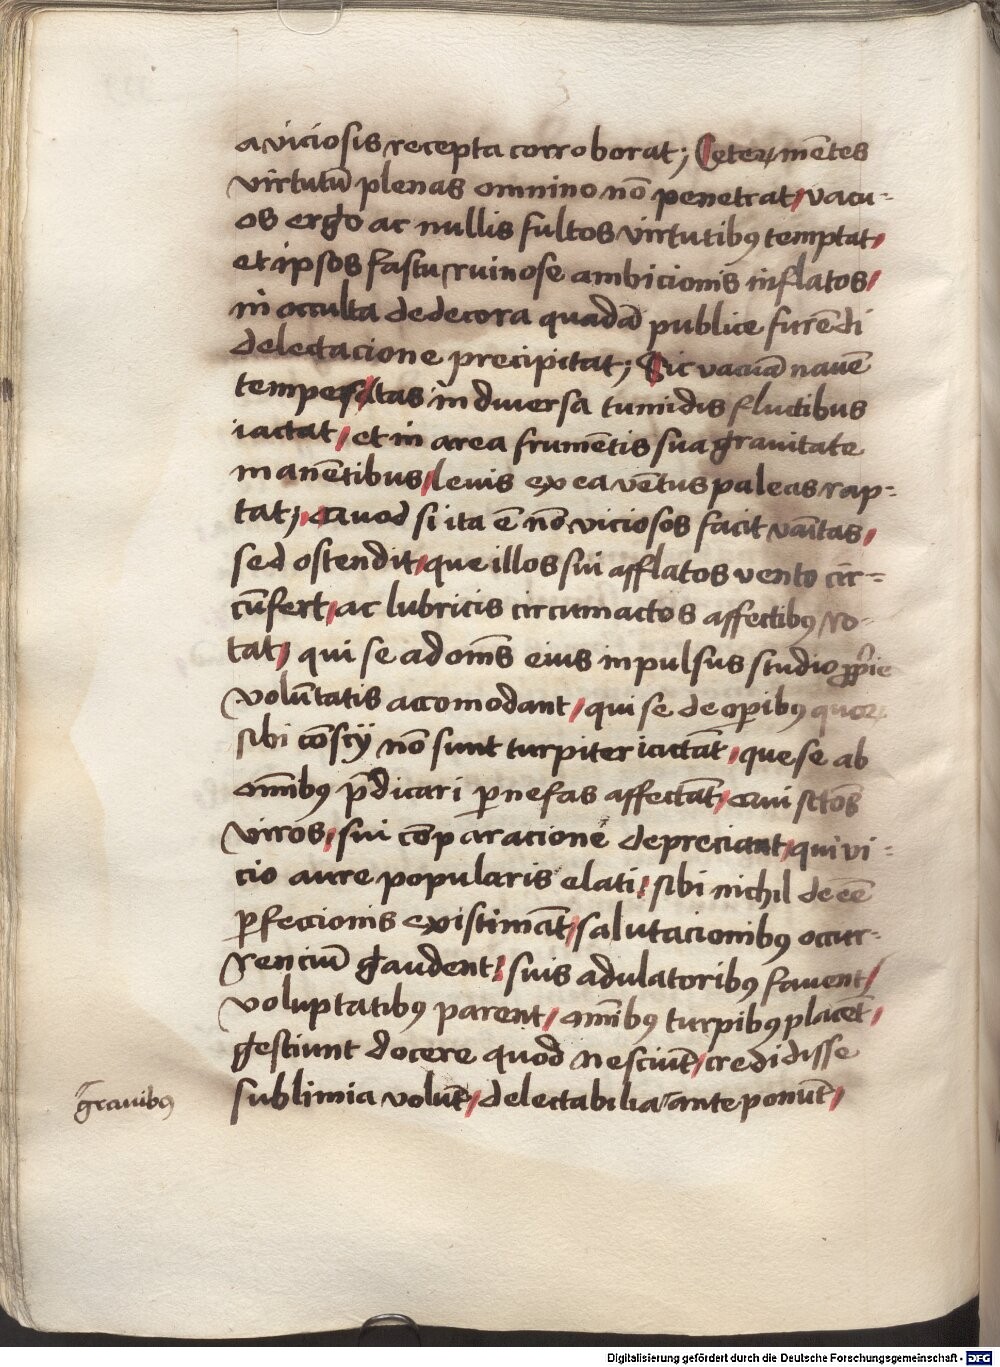 a viciosis recepta corroborat; Ceteꝝ mētes
virtutū plenas omnino nō penetrat / vacu-
os ergo ac nullis fultos virtutibꝰ temptat /
et ipsos fastu ruinose ambicionis inflatos /
in occulta dedecora quadā publice furēdi
delectacione precipitat; Sic vacuā nauē
tempestas in diuersa tumidis fluctibus
iactat / et in area frumētis sua grauitate
manētibus / leuis ex ea vētus paleas rap-
tat; Quod si ita ē nō viciosos facit vāitas /
sed ostendit / que illos sui afflatos vento cir-
cūfert / ac lubricis circumactos affectibꝰ ro-
tat / qui se ad om̄s eius inpulsus studio ꝓprie
volūtatis accomodant / qui se de oꝑibꝰ quoꝝ
sibi cōscij nō sunt turpiter iactāt / que se ab
om̄ibꝰ p̄dicari ꝑ nefas affectāt / qui sctōs
viros / sui cōparacione depreciant / qui vi-
cio aure popularis elati / sibi nichil deeē
ꝑfeccionis existimāt / salutacionibꝰ occur-
renciū gaudent / suis adulatoribꝰ fauent /
voluptatibꝰ parent / om̄ibꝰ turpibꝰ placēt /
gestiunt docere quod nesciūt / credidisse
sublimia volūt / delectabilia ante ponūt /
grauibꝰ
Digitalisierung gefördert durch die Deutsche Forschungsgemeinschaft - DFG